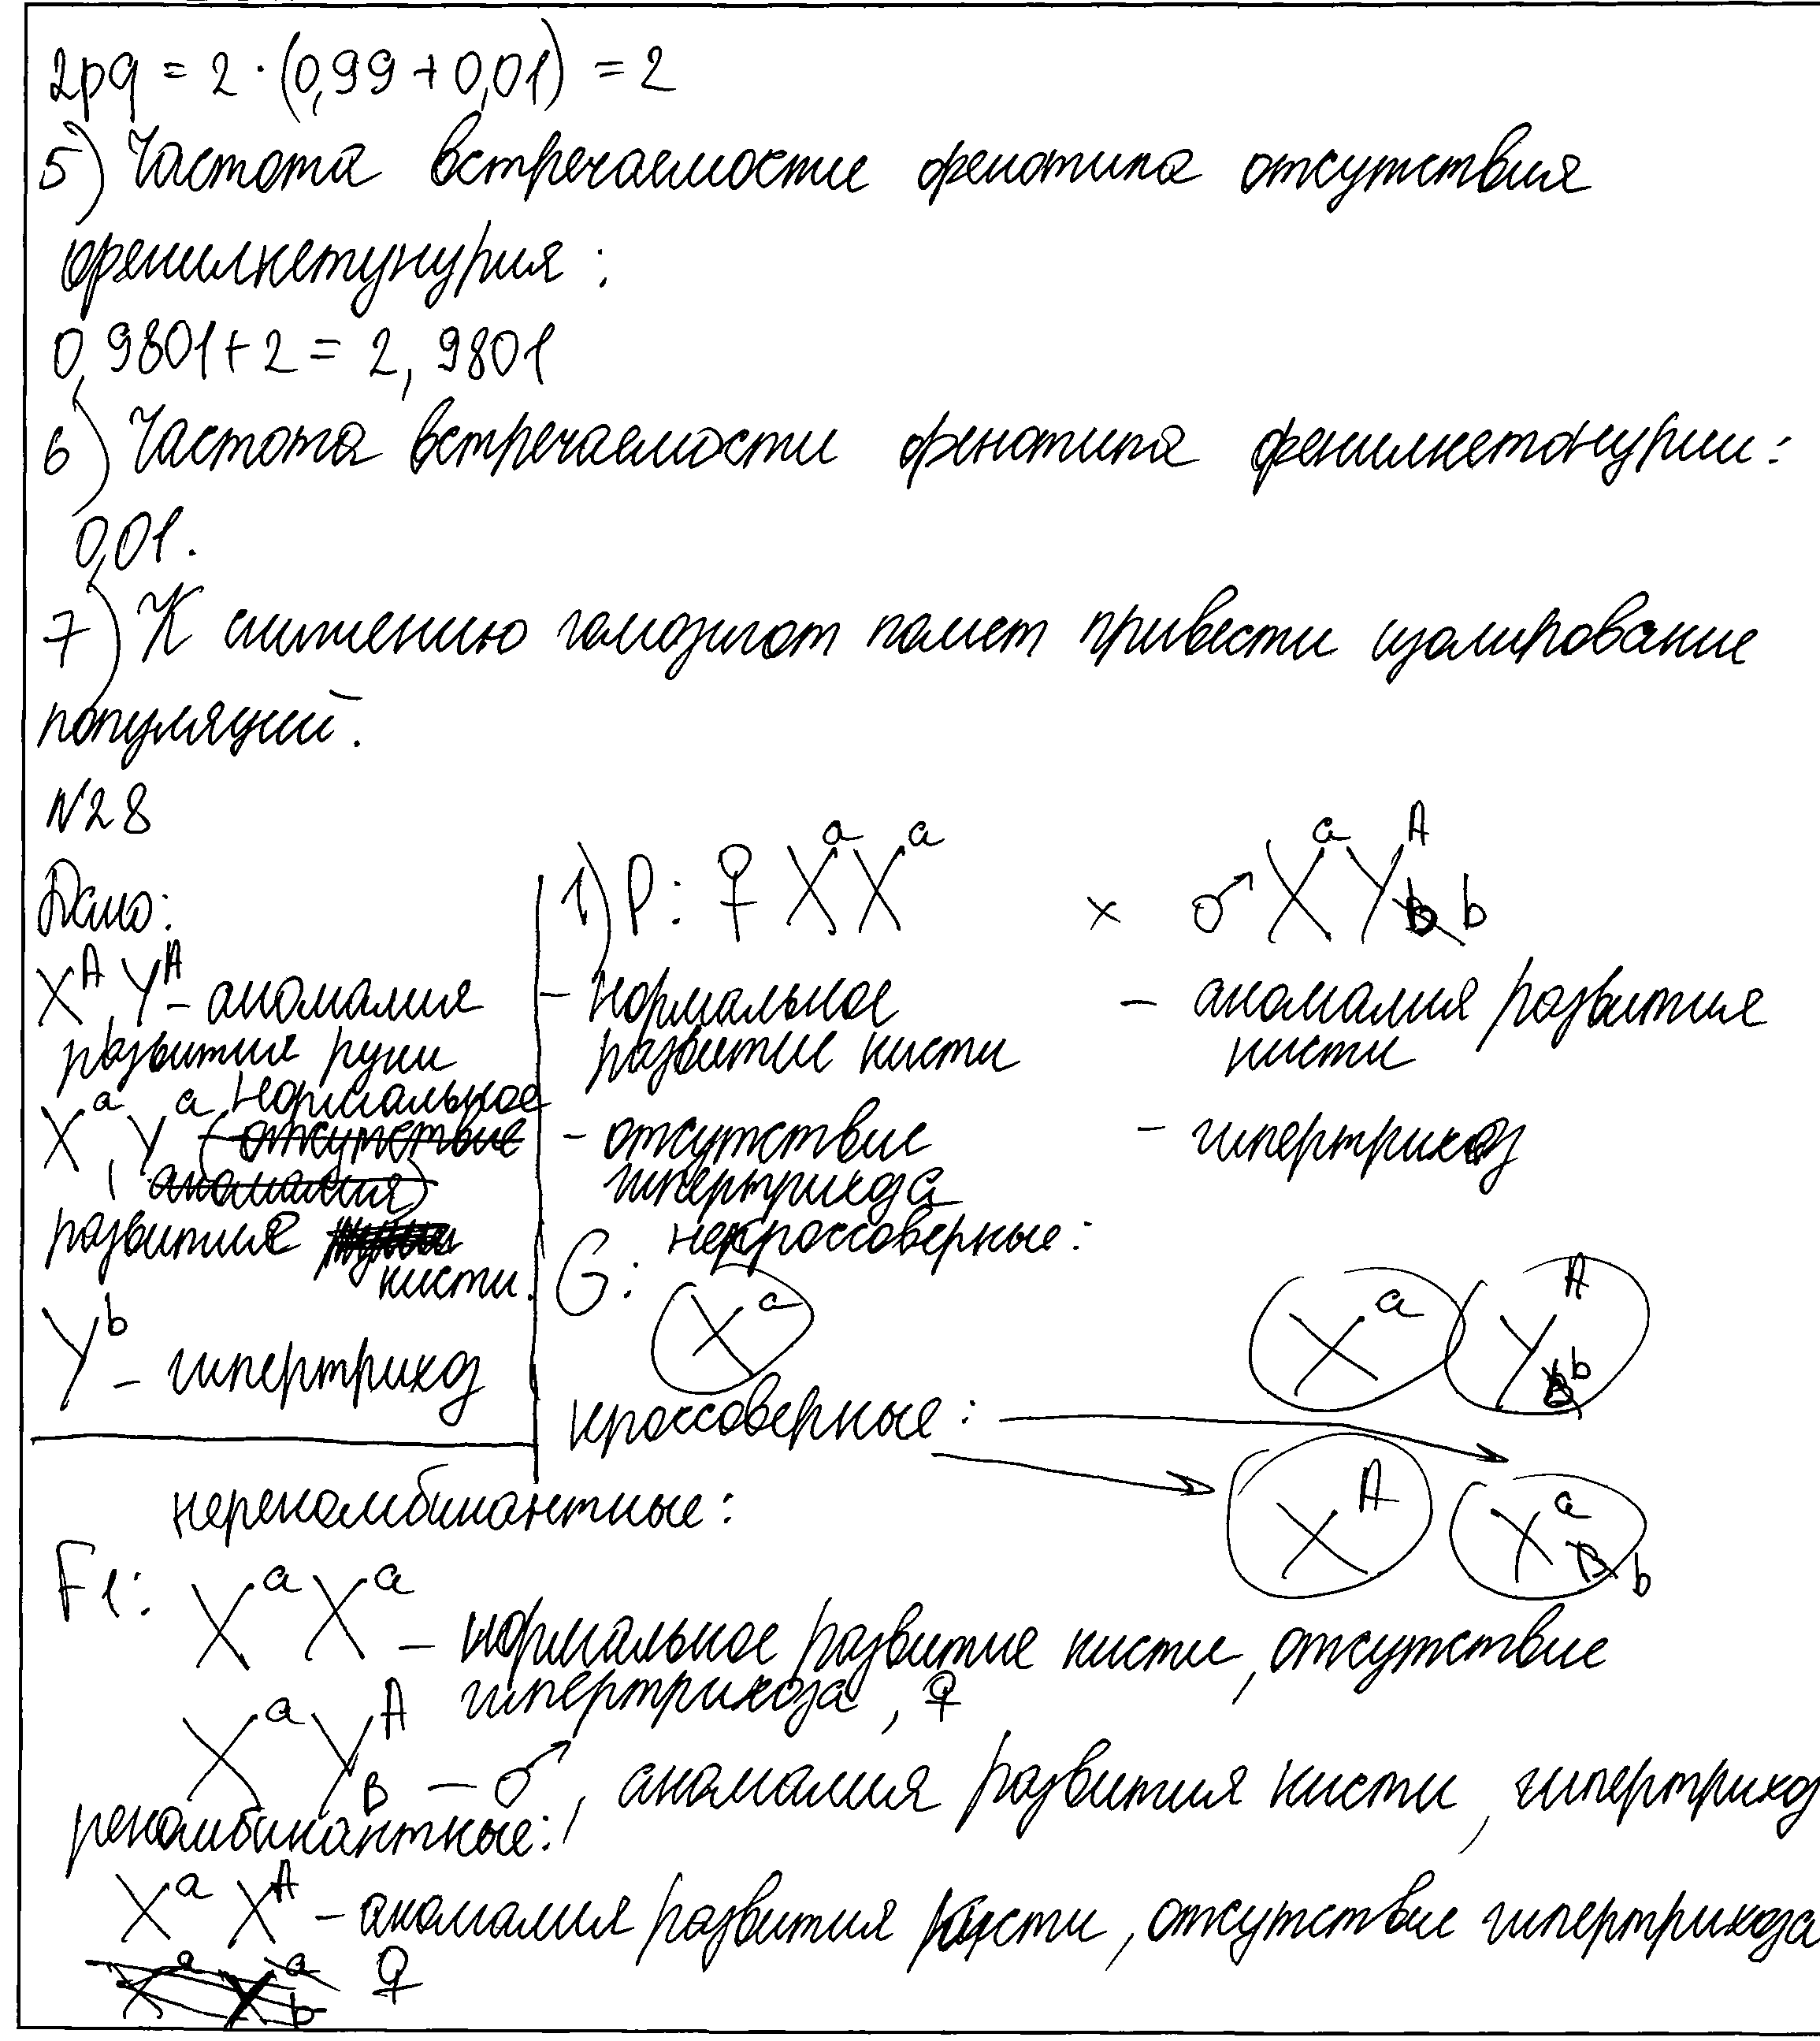 2pq = 2 · (0,99 + 0,01) = 2
5) Частота встречаемости фенотипа отсутствия
фенилкетунурия :
0,9801 + 2 = 2,9801
6) Частота встречаемости фенотипа фенилкетонурии:
0,01.
7) К снижению гомозигот может привести изолирование
популяций.
N28
Дано:
X^A, Y^A – аномалия
развития руки
X^a, Y^a нормальное
(отсутствие
аномалия)
развития
кисти.
Y^b – гипертрихоз
1) P: ♀ X^a X^a × ♂ X^a Y^A b
– нормальное – аномалия развития
развитие кисти кисти
– отсутствие – гипертрихоз
гипертрихоза
некроссоверные:
G: X^a X^a Y^A b
кроссоверные:
X^A X^a b
нерекомбинантные:
F1: X^a X^a – нормальное развитие кисти, отсутствие
гипертрихоза, ♀
X^a Y^A B – ♂, аномалия развития кисти, гипертрихоз
рекомбинантные:
X^a X^A – аномалия развития кисти, отсутствие гипертрихоза
♀